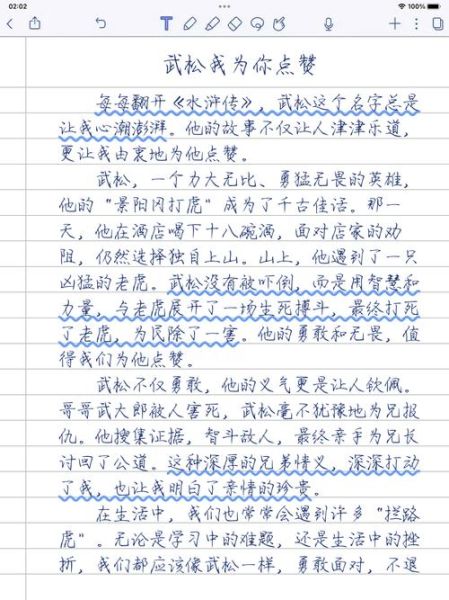 02:02
100%
武松我为你点赞
每每翻开《水浒传》，武松这个名字总是
让我心潮澎湃。他的故事不仅让人津津乐道，
更让我由衷地为他点赞。
武松，一个力大无比、勇猛无畏的英雄，
他的“景阳冈打虎”成为了千古佳话。那一
天，他在酒店喝下十八碗酒，面对店家的劝
阻，仍然选择独自上山。山上，他遇到了一只
凶猛的老虎。武松没有被吓倒，而是用智慧和
力量，与老虎展开了一场生死搏斗，最终打死
了老虎，为民除了一害。他的勇敢和无畏，值
得我们为他点赞。
武松不仅勇敢，他的义气更是让人钦佩。
哥哥武大郎被人害死，武松毫不犹豫地为兄报
仇。他搜集证据，智斗敌人，最终亲手为兄长
讨回了公道。这种深厚的兄弟情义，深深打动
了我，也让我明白了亲情的珍贵。
在生活中，我们也常常会遇到许多“拦路
虎”。无论是学习中的难题，还是生活中的挫
折，我们都应该像武松一样，勇敢面对，不退